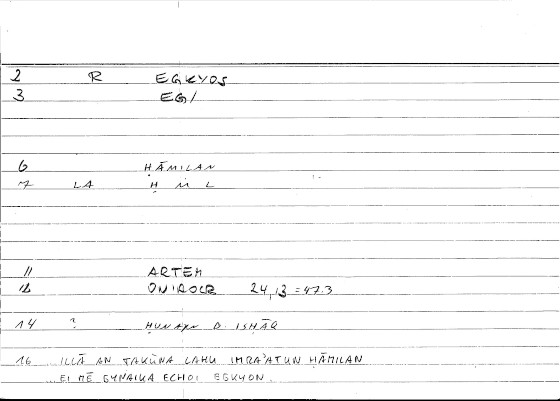 2 R EGKYOS
3 EG/
6 ḤĀMILAN
7 LA Ḥ M L
11 ARTEM
12 ONIROCR 24,13 = 47.3
14 ? ḤUNAYN B. ISḤĀQ
16 ILLĀ AN TAKŪNA LAHU IMRAʾATUN ḤĀMILAN
EI MĒ GYNAIKA ECHOI EGKYON